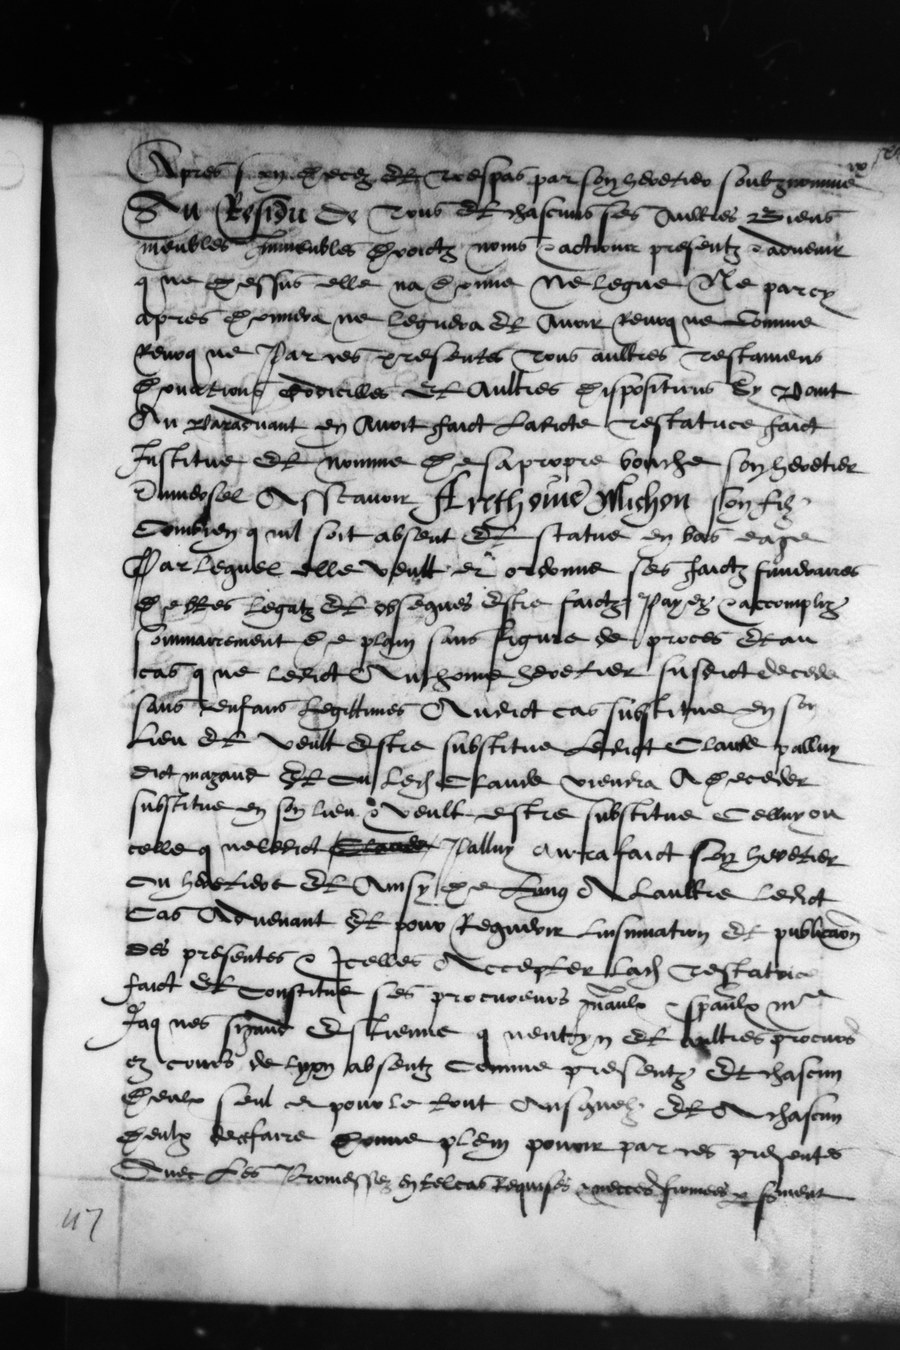 Apres son decez et trespas par son heretier soubznomme
Au Residu de tous et chascuns ses aultres Biens
meubles Immeubles droictz noms & actions presentz & advenir
que dessus elle na donne Ne legue Ne par cy
apres donnera ne leguera et avoir revoque comme
Revoque Par ces presentes tous aultres testamens
donations codicilles et aultres dispositions Cy devant
Au paravant en avoit faict Ladicte testatrice faict
Institue et nomme de sa propre bouche son heretier
Universel Asscavoir Anthoine Michon son filz
Combien quil soit absent et statue en bas eage
Par lequel elle veult et ordonne ses faictz funeraires
debtes legatz et obseques Estre faictz Payez & accompliz
sommairement de plain sans figure de proces et au
cas que ledict Anthoine heretier susdict decede
sans enfans legittimes Audict cas substitue en son
Lieu et veult Estre substitue Ledict Claude palluy
dict mazand Et Ou Led Claude viendra A deceder
substitue en son lieu & veult estre substitue Celluy ou
celle que ledict Palluy aura faict son heretier
Ou heretiere et Ainsy de Lung A Laultre ledict
Cas Advenant Et pour Requerir Linsinuation et publicaon
Des presentes & Icelles Accepter Lad testatrice
faict et Constitue ses procureurs gnaulx & spaulx me
Jaques Estienne et aultres procurs
ez cours de lyon absentz Comme presentz Et chascun
deulx seul et pour le tout Ausquelz et A chascun
deulx de faire donne plein pouvoir par ces presentes
Avec Les Promesses en tel cas Requises & necces
47